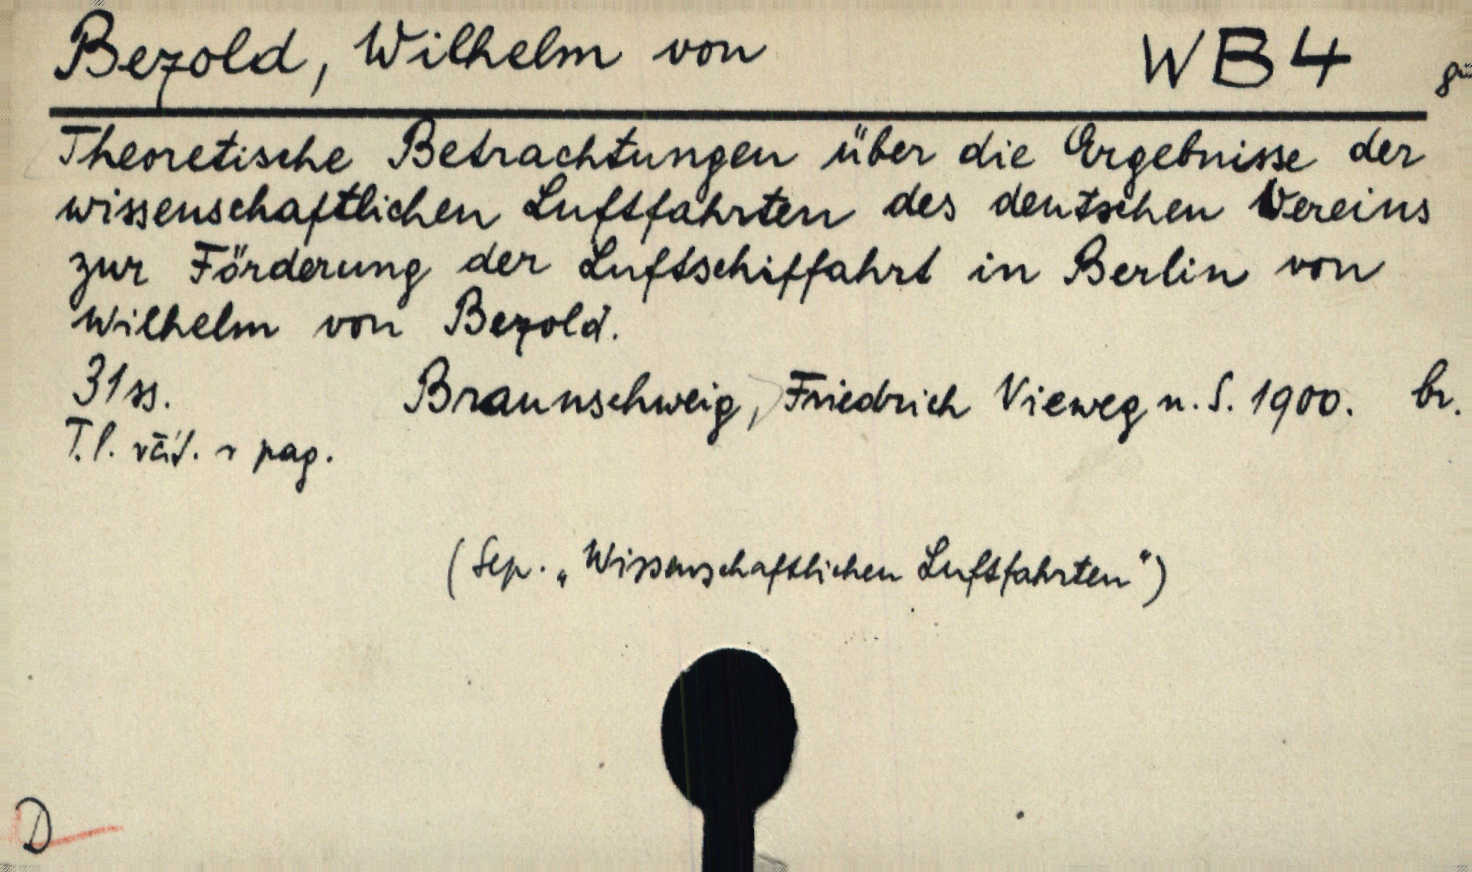 Bezold, Wilhelm von WB4
Theoretische Betrachtungen über die Ergebnisse der
wissenschaftlichen Luftfahrten des deutschen Vereins
zur Förderung der Luftschiffahrt in Berlin von
Wilhelm von Bezold.
31ss. Braunschweig, Friedrich Vieweg u. S. 1900. br.
T.l. pag.
(Sep. „Wissenschaftlichen Luftfahrten")
D